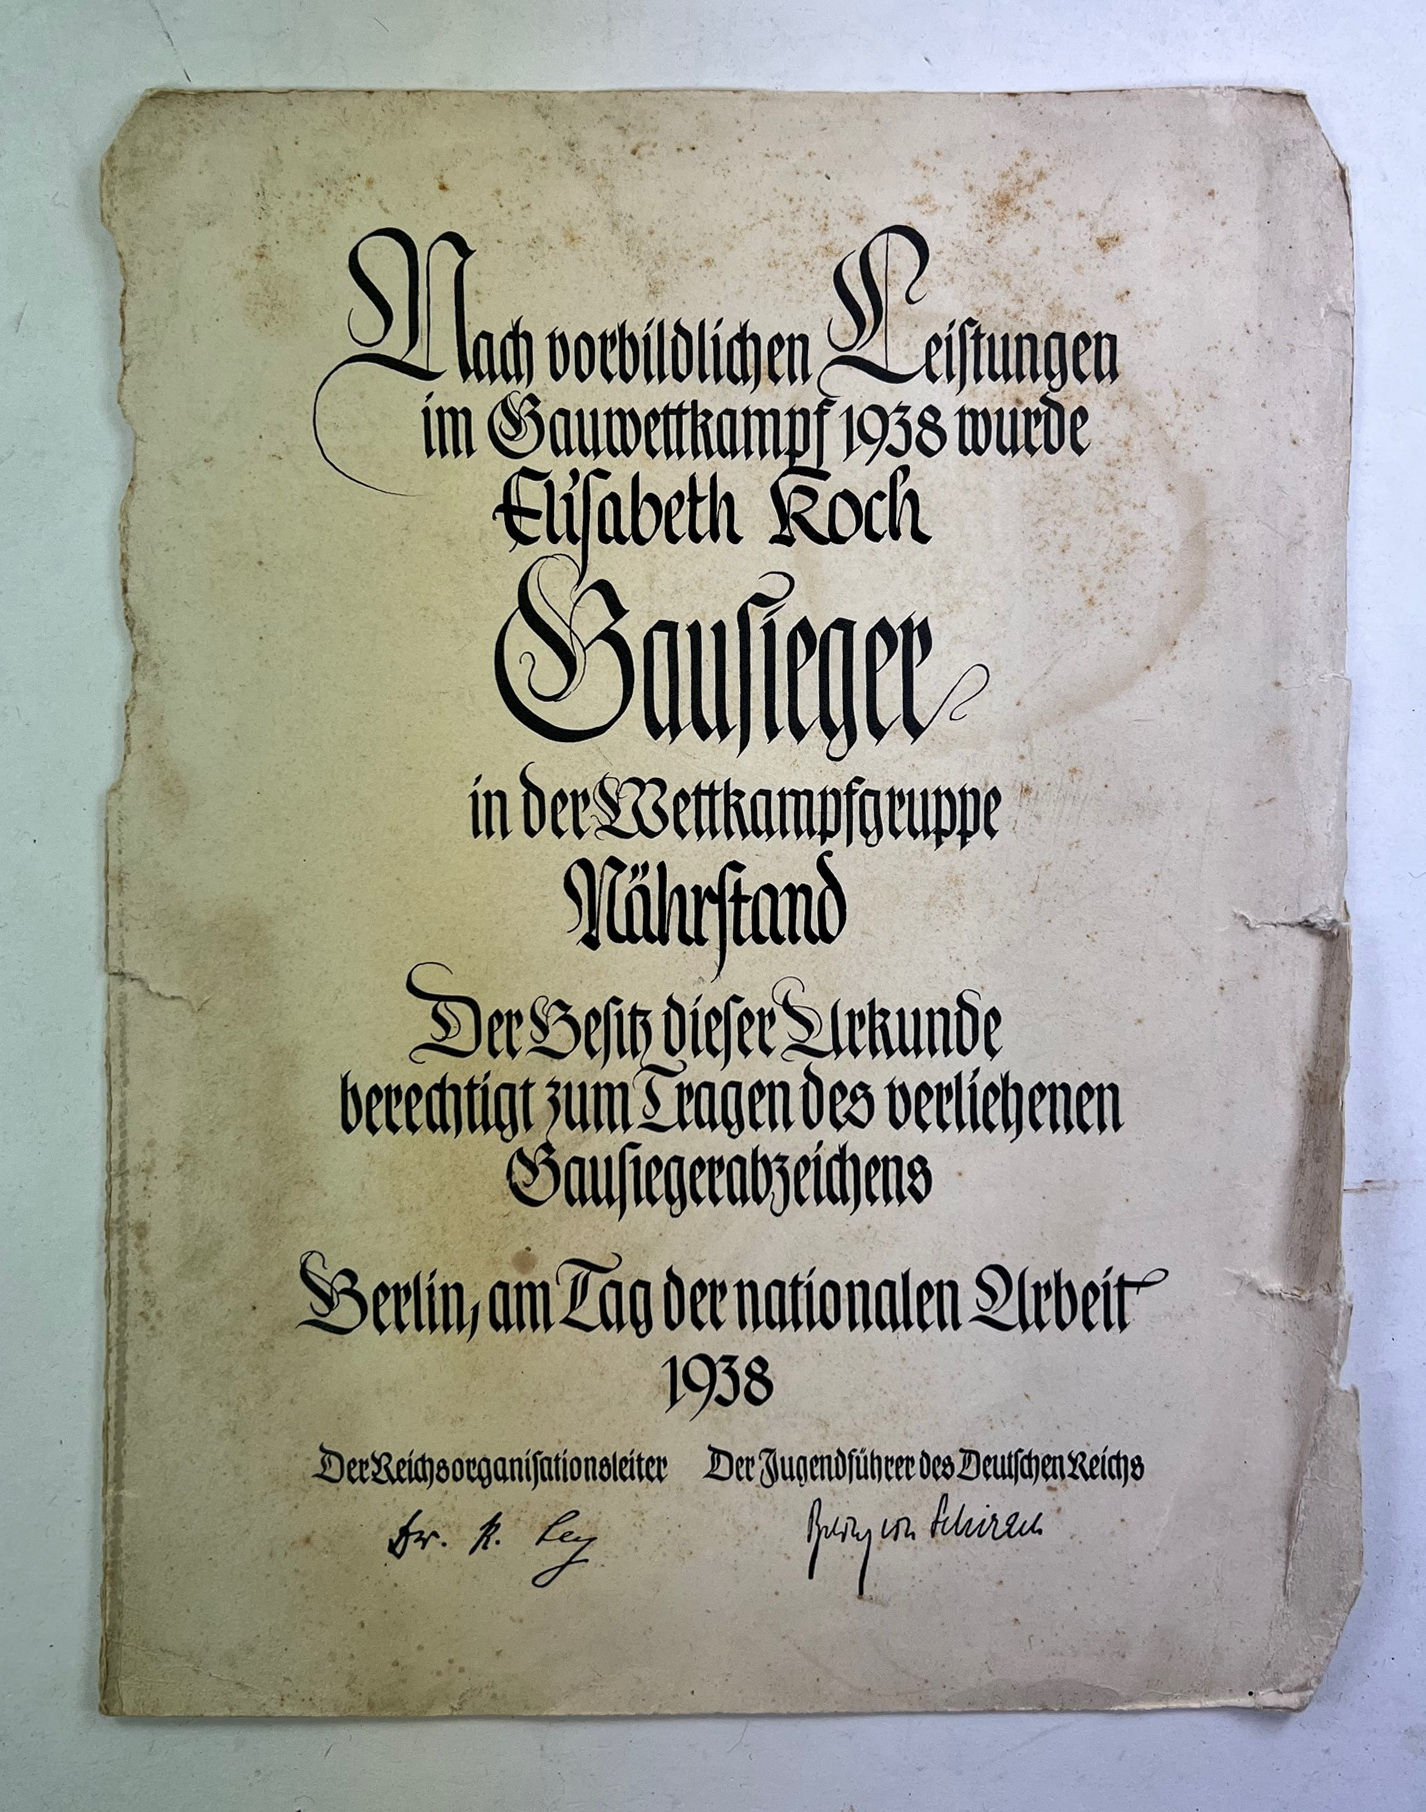 Nach vorbildlichen Leistungen
im Gauwettkampf 1938 wurde
Elisabeth Koch
Gausieger
in der Wettkampfgruppe
Nährstand
Der Besitz dieser Urkunde
berechtigt zum Tragen des verliehenen
Gausiegerabzeichens
Berlin, am Tag der nationalen Arbeit
1938
Der Reichsorganisationsleiter Der Jugendführer des Deutschen Reichs
Dr. R. Ley Baldur von Schirach